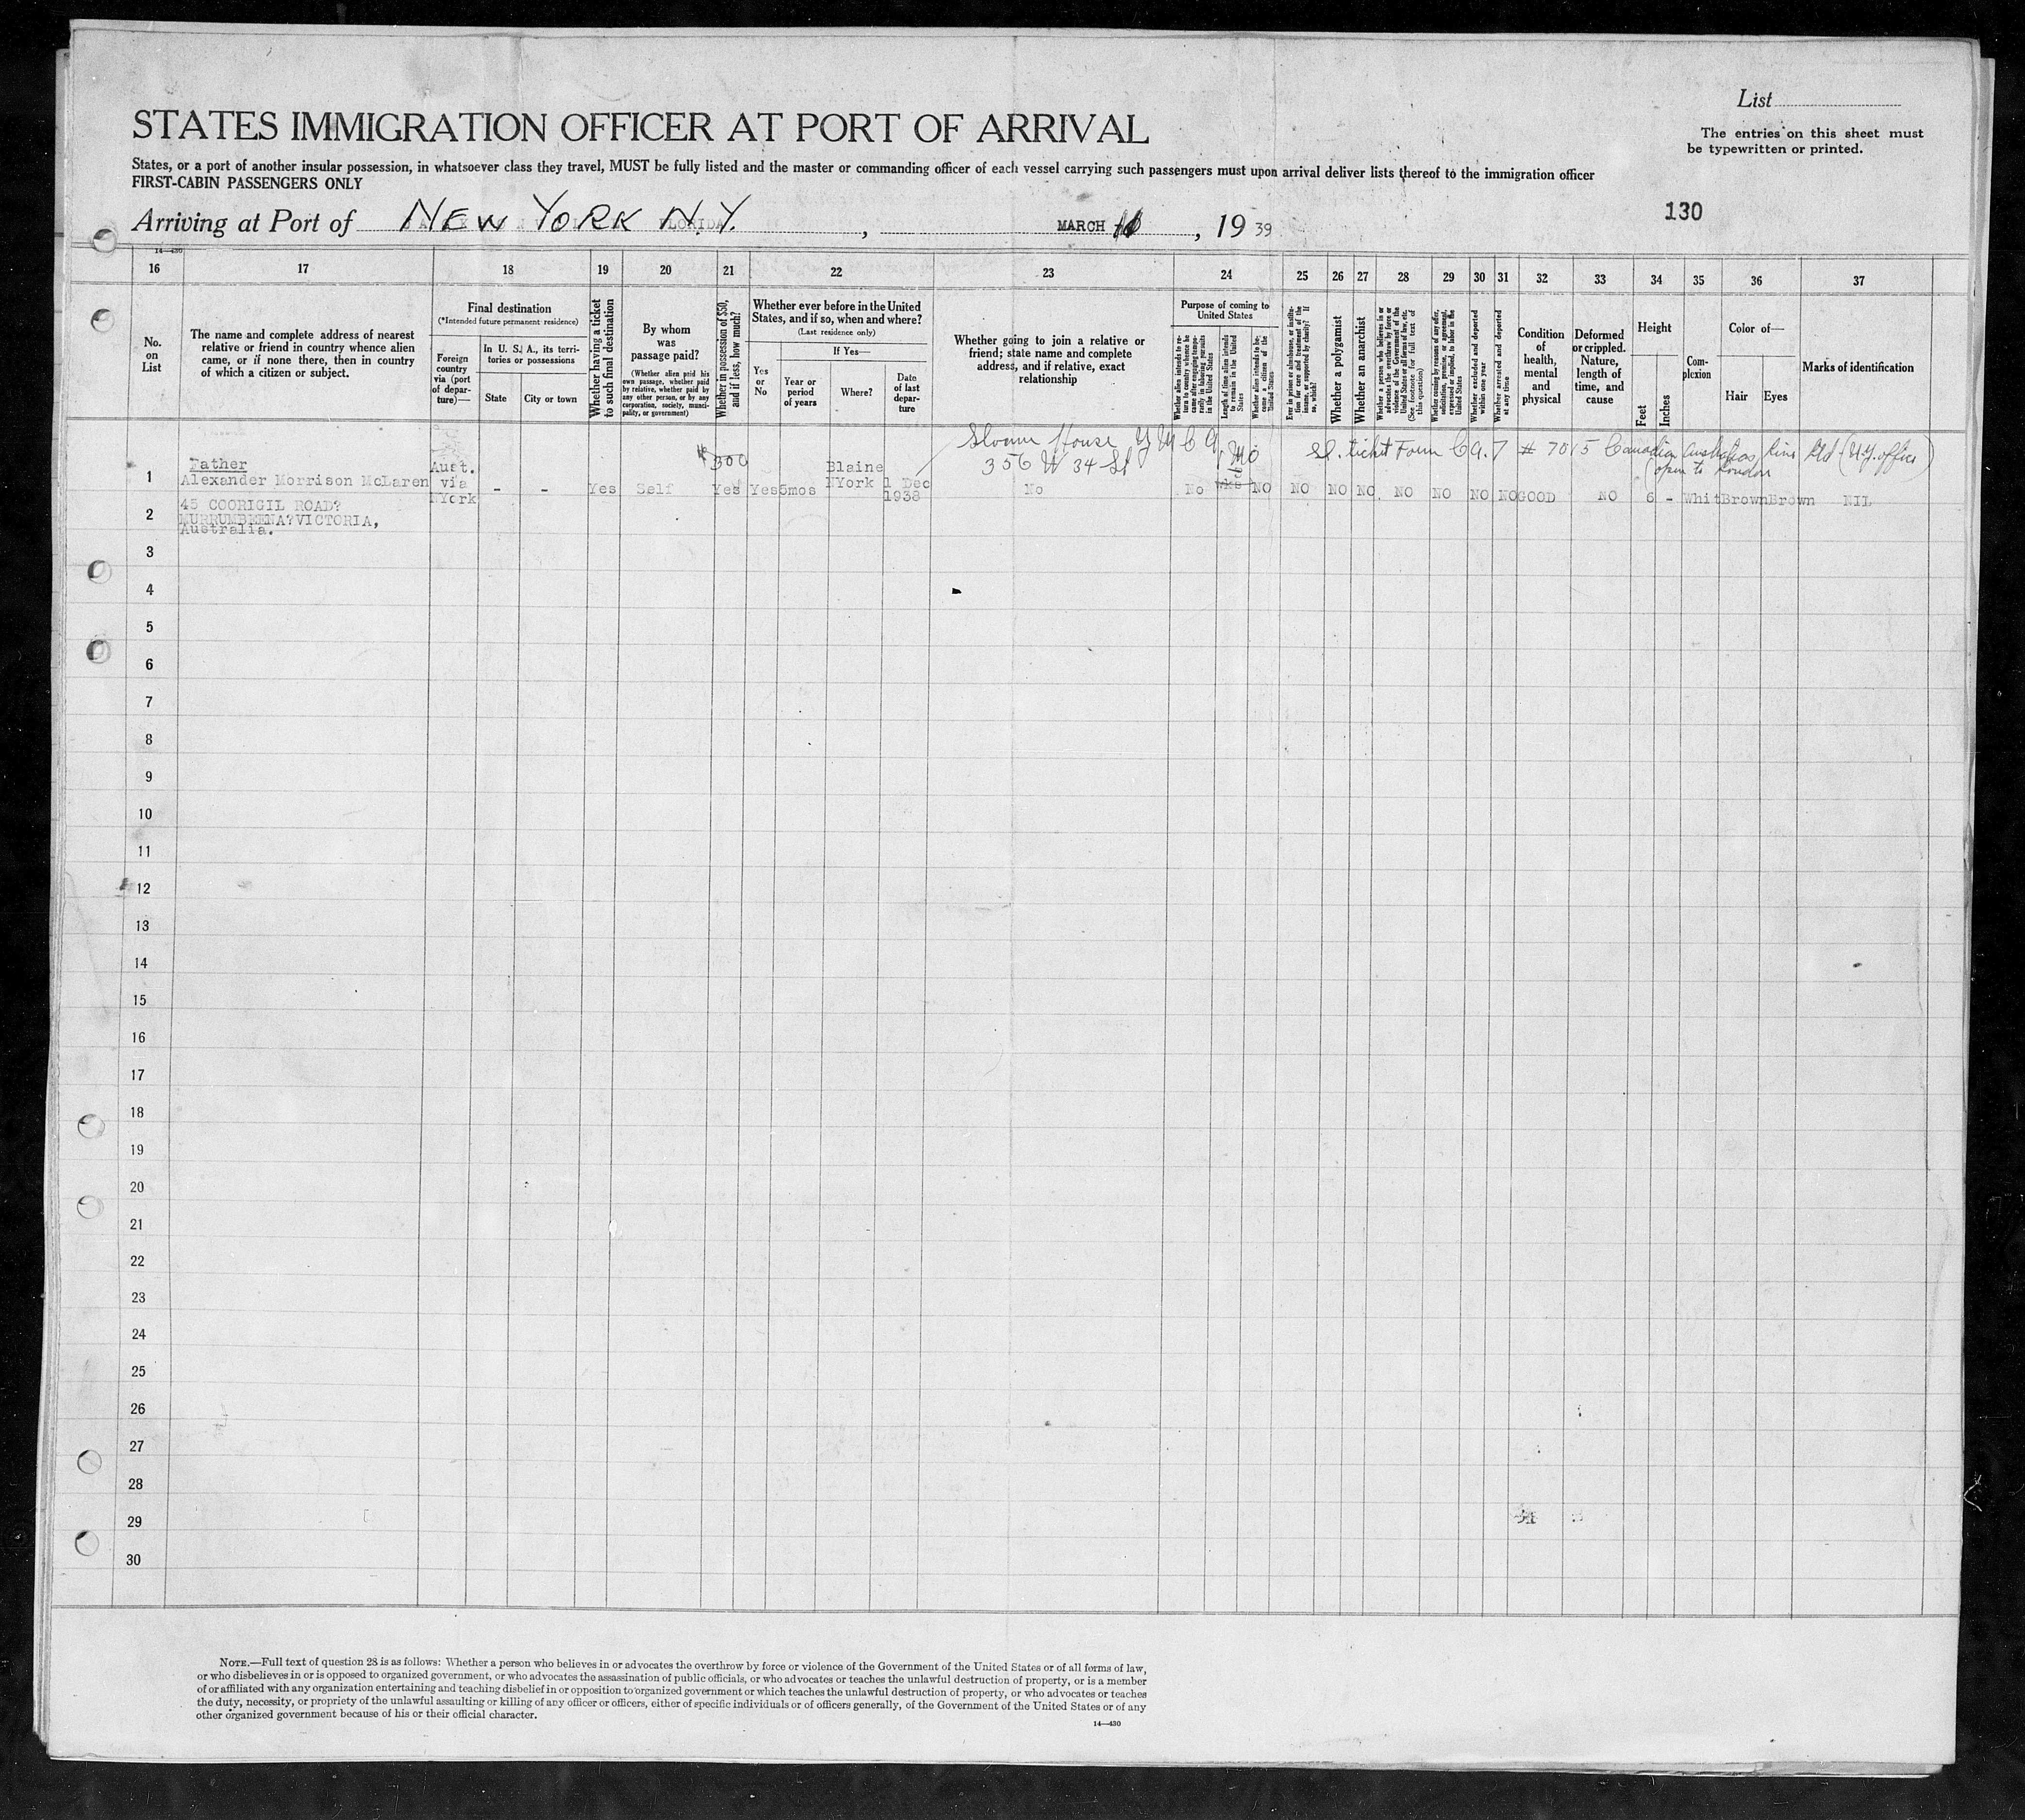 List
STATES IMMIGRATION OFFICER AT PORT OF ARRIVAL
The entries on this sheet must
be typewritten or printed.
States, or a port of another insular possession, in whatsoever class they travel, MUST be fully listed and the master or commanding officer of each vessel carrying such passengers must upon arrival deliver lists thereof to the immigration officer
FIRST-CABIN PASSENGERS ONLY
130
Arriving at Port of NEW YORK N.Y. , MARCH , 19 39
14—430
16 17 18 19 20 21 22 23 24 25 26 27 28 29 30 31 32 33 34 35 36 37
No.
on
List
The name and complete address of nearest
relative or friend in country whence alien
came, or if none there, then in country
of which a citizen or subject.
Final destination
(*Intended future permanent residence)
Foreign
country
via (port
of depar-
ture)—
In U. S. A., its terri-
tories or possessions
State
City or town
Whether having a ticket
to such final destination
By whom
was
passage paid?
(Whether alien paid his
own passage, whether paid
by relative, whether paid by
any other person, or by any
corporation, society, munici-
pality, or government)
Whether in possession of $50,
and if less, how much?
Whether ever before in the United
States, and if so, when and where?
(Last residence only)
Yes
or
No
If Yes—
Year or
period
of years
Where?
Date
of last
depar-
ture
Whether going to join a relative or
friend; state name and complete
address, and if relative, exact
relationship
Purpose of coming to
United States
Whether alien intends to re-
turn to country whence he
came after engaging tempo-
rarily in laboring pursuits
in the United States
Length of time alien intends
to remain in the United
States
Whether alien intends to be-
come a citizen of the
United States
Ever in prison or almshouse, or institu-
tion for care and treatment of the
insane, or supported by charity? If
so, which?
Whether a polygamist
Whether an anarchist
Whether a person who believes in or
advocates the overthrow by force or
violence of the Government of the
United States or all forms of law, etc.
(See footnote for full text of
this question)
Whether coming by reasons of any offer,
solicitation, promise, or agreement,
expressed or implied, to labor in the
United States
Whether excluded and deported
within one year
Whether arrested and deported
at any time
Condition
of
health,
mental
and
physical
Deformed
or crippled.
Nature,
length of
time, and
cause
Height
Feet
Inches
Com-
plexion
Color of—
Hair
Eyes
Marks of identification
Sloane House Y M C A
356 W 34 St
Mo
# 7015 Canadian Line (N.Y. office)
open to London
$300
1
Father
Alexander Morrison McLaren
Aust.
via
NYork
- - Yes Self Yes Yes 5mos
Blaine
NYork
1 Dec
1938
No No wks NO NO NO NO. NO NO NO NO GOOD NO 6 - Whit Brown Brown NIL
2
45 COORIGIL ROAD?
MURRUMBEENA?VICTORIA,
Australia.
3
4
5
6
7
8
9
10
11
12
13
14
15
16
17
18
19
20
21
22
23
24
25
26
27
28
29
30
NOTE.—Full text of question 28 is as follows: Whether a person who believes in or advocates the overthrow by force or violence of the Government of the United States or of all forms of law,
or who disbelieves in or is opposed to organized government, or who advocates the assassination of public officials, or who advocates or teaches the unlawful destruction of property, or is a member
of or affiliated with any organization entertaining and teaching disbelief in or opposition to organized government or which teaches the unlawful destruction of property, or who advocates or teaches
the duty, necessity, or propriety of the unlawful assaulting or killing of any officer or officers, either of specific individuals or of officers generally, of the Government of the United States or of any
other organized government because of his or their official character.
14—430